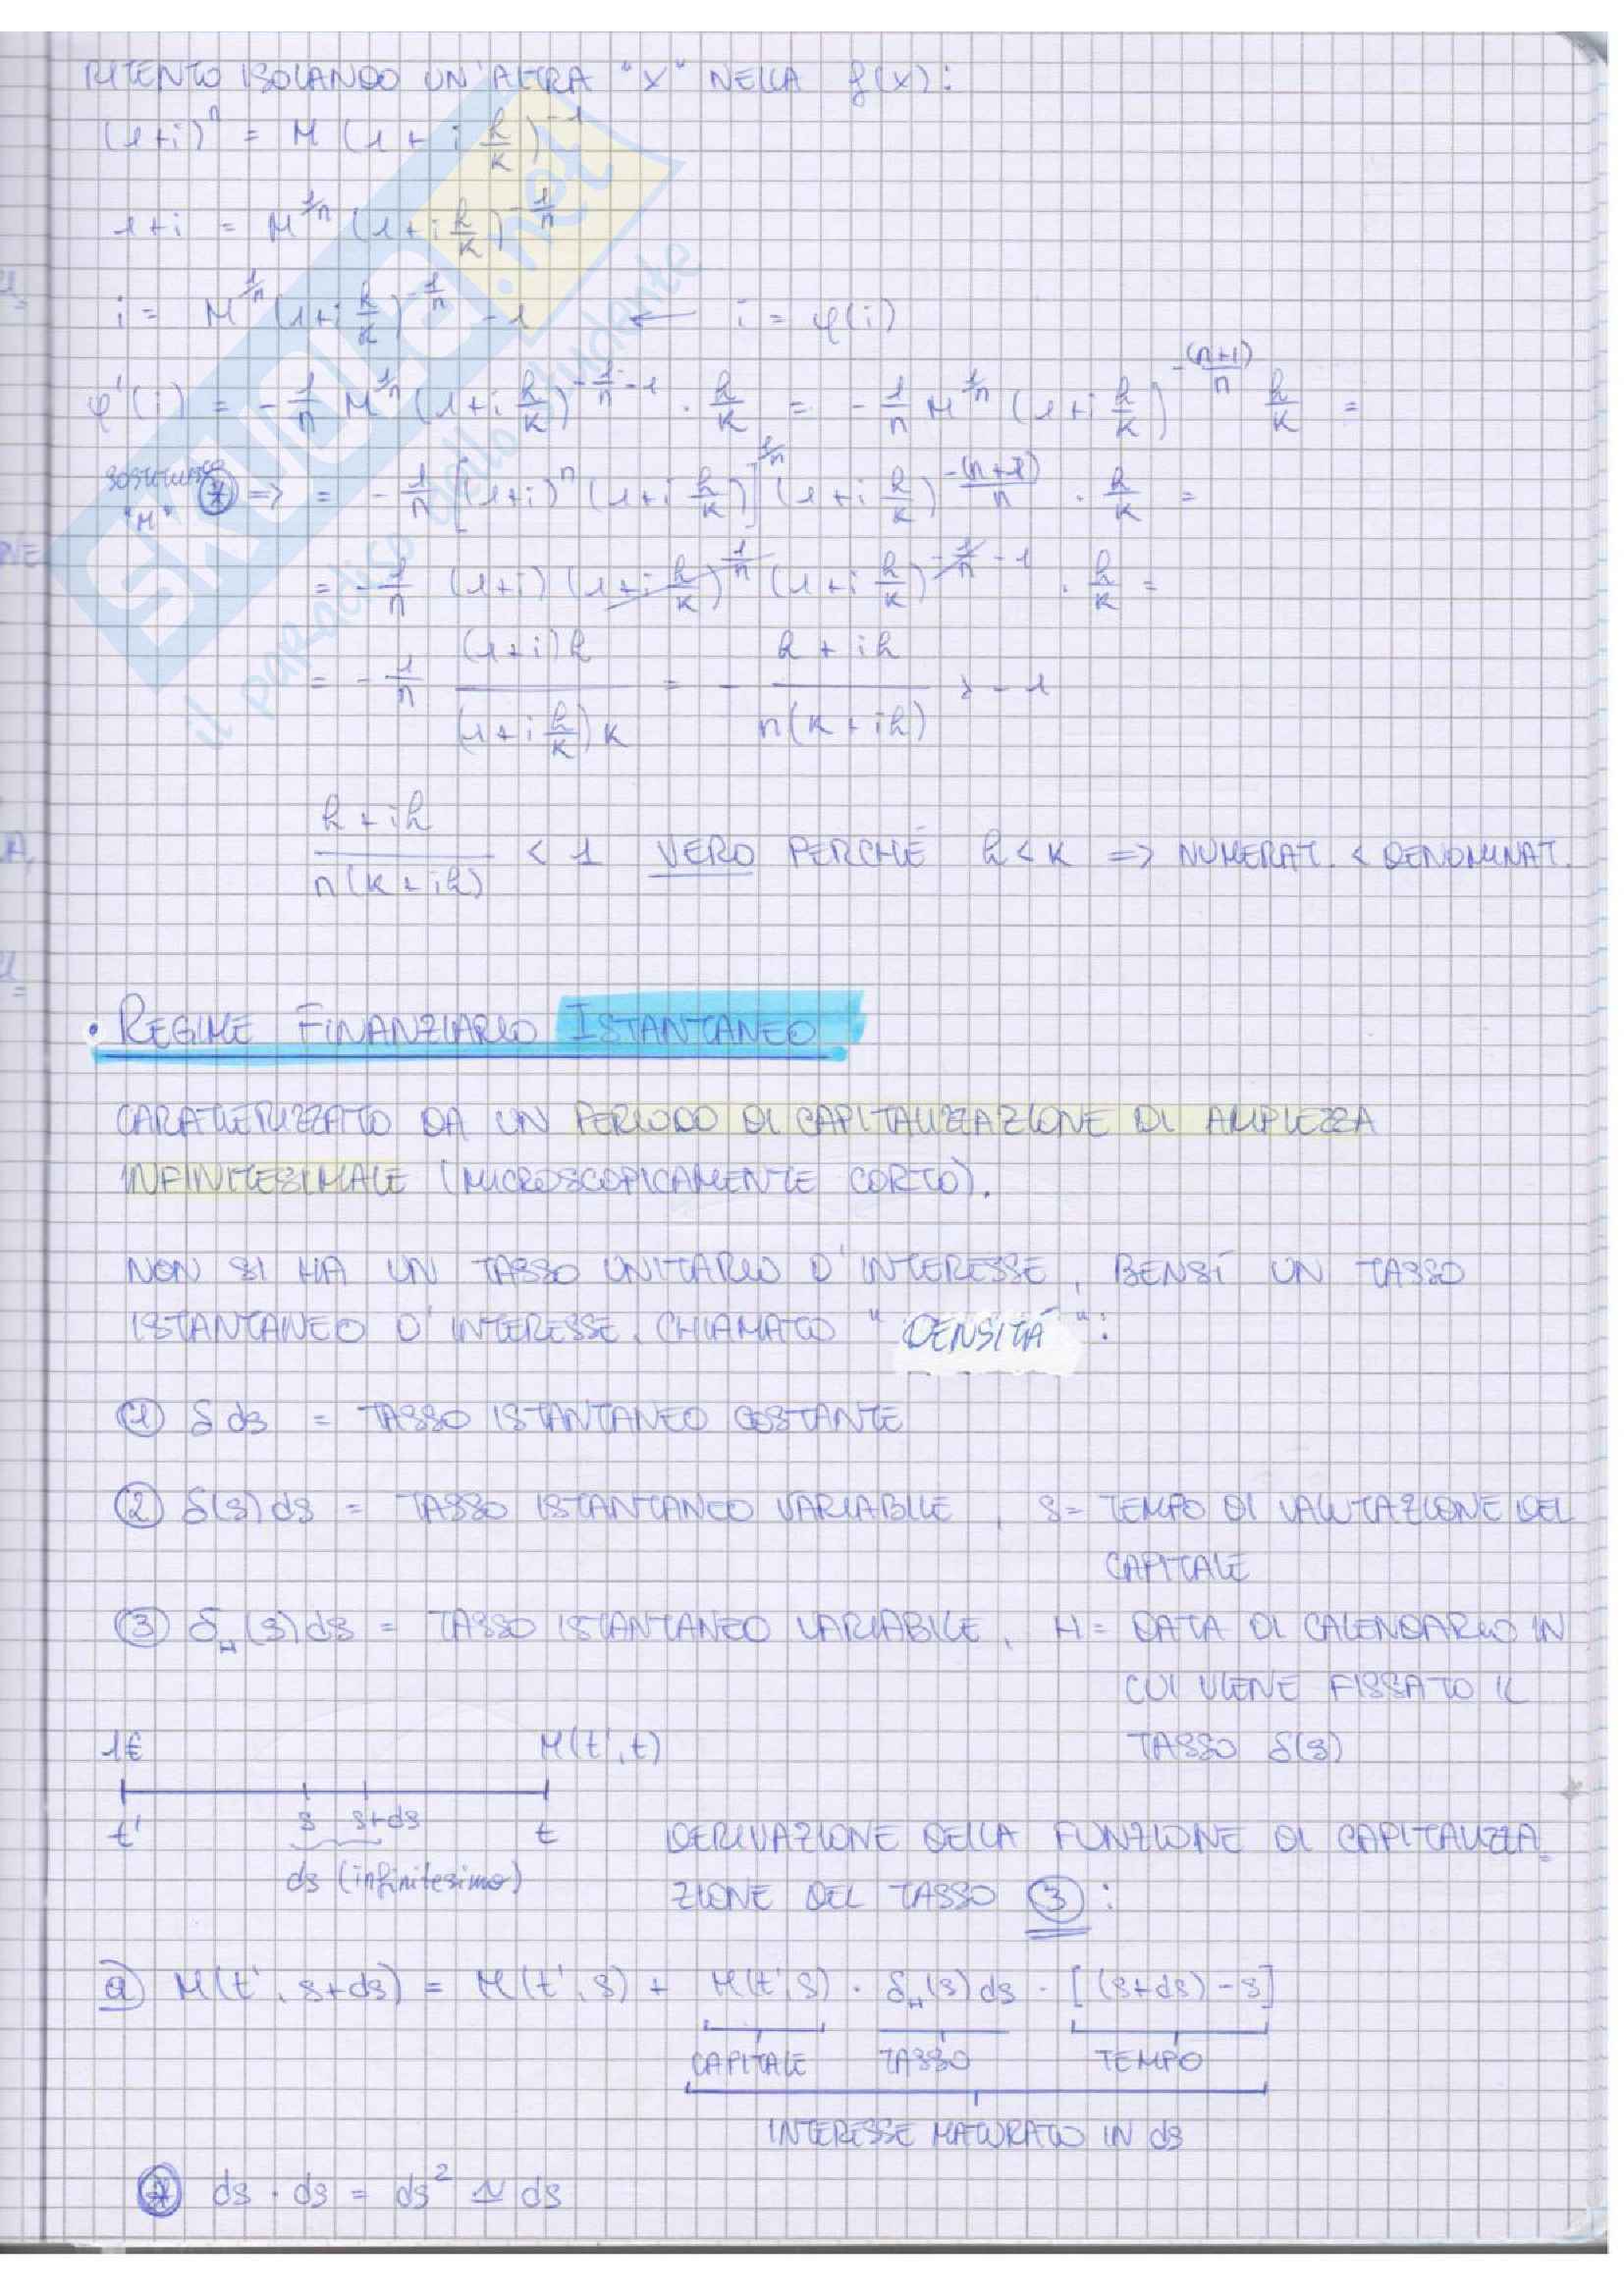 RITENTO ISOLANDO UN'ALTRA "X" NELLA f(x):
(1+i)^n = M (1 + i h/k)^-1
1+i = M^1/n (1+i h/k)^-1/n
i = M^1/n (1+i h/k)^-1/n - 1 ← i = φ(i)
φ'(i) = - 1/n M^1/n (1+i h/k)^-1/n-1 · h/k = - 1/n M^1/n (1+i h/k)^-(n+1)/n h/k =
SOSTITUISCO "M" ⊛ => = - 1/n [(1+i)^n (1+i h/k)]^1/n (1+i h/k)^-(n+1)/n · h/k =
= - 1/n (1+i) (1+i h/k)^1/n (1+i h/k)^-1/n-1 · h/k =
= - 1/n (1+i)h / (1+i h/k)k = - h+ih / n(k+ih) > -1
h+ih / n(k+ih) < 1 VERO PERCHÉ h<k => NUMERAT. < DENOMINAT.
• REGIME FINANZIARIO ISTANTANEO
CARATTERIZZATO DA UN PERIODO DI CAPITALIZZAZIONE DI AMPIEZZA
INFINITESIMALE (MICROSCOPICAMENTE CORTO).
NON SI HA UN TASSO UNITARIO D'INTERESSE, BENSÌ UN TASSO
ISTANTANEO D'INTERESSE, CHIAMATO "DENSITÀ":
① δ ds = TASSO ISTANTANEO COSTANTE
② δ(s) ds = TASSO ISTANTANEO VARIABILE, s = TEMPO DI VALUTAZIONE DEL
CAPITALE
③ δH(s) ds = TASSO ISTANTANEO VARIABILE, H = DATA DI CALENDARIO IN
CUI VIENE FISSATO IL
TASSO δ(s)
1€ M(t',t)
t' s s+ds t
ds (infinitesimo)
DERIVAZIONE DELLA FUNZIONE DI CAPITALIZZA
ZIONE DEL TASSO ③:
a) M(t', s+ds) = M(t', s) + M(t',s) · δH(s) ds · [(s+ds) - s]
CAPITALE TASSO TEMPO
INTERESSE MATURATO IN ds
⊛ ds · ds = ds² ≃ ds
SKUOLA.net
il paradiso dello studente